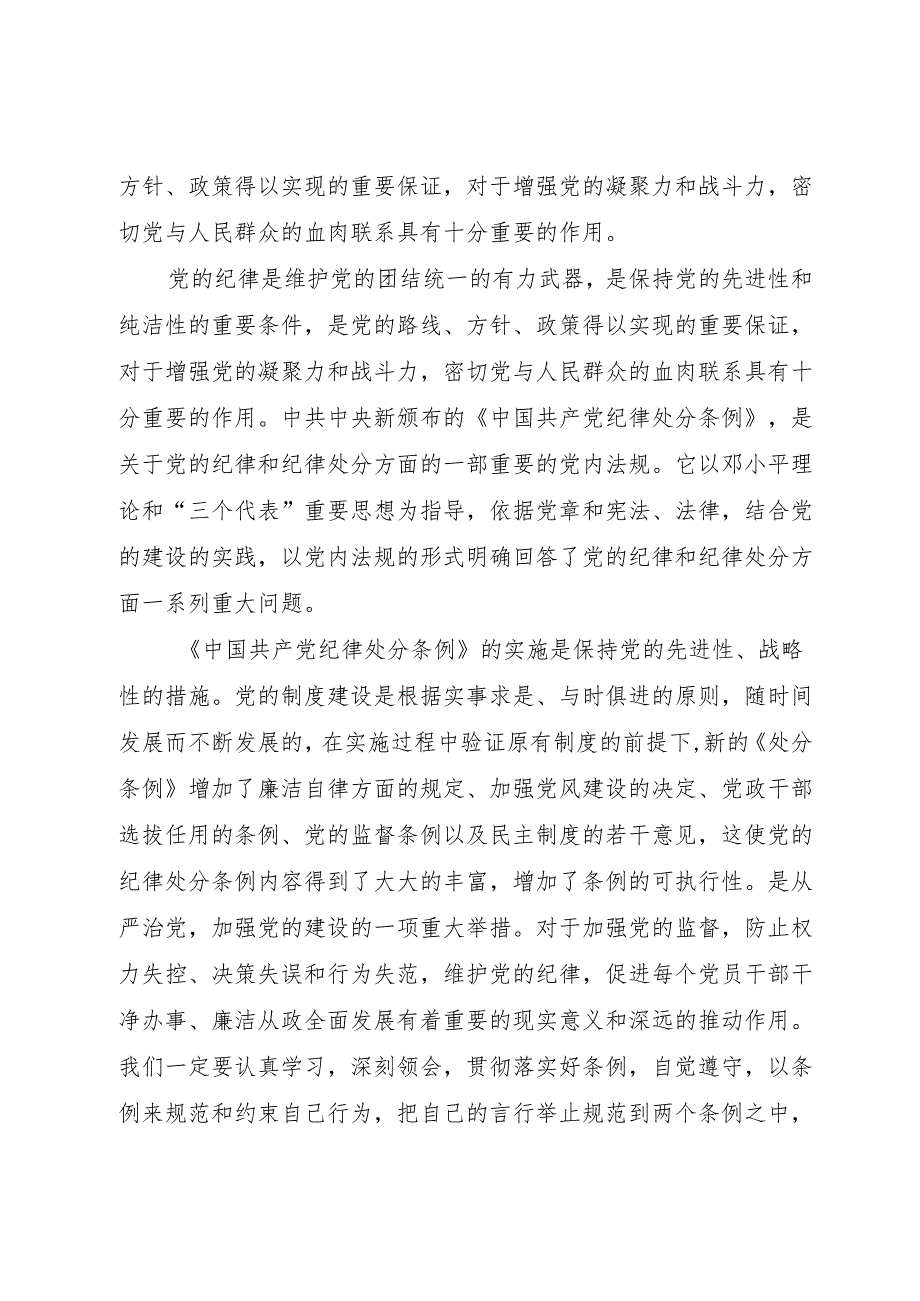 方针、政策得以实现的重要保证，对于增强党的凝聚力和战斗力，密
切党与人民群众的血肉联系具有十分重要的作用。
党的纪律是维护党的团结统一的有力武器，是保持党的先进性和
纯洁性的重要条件，是党的路线、方针、政策得以实现的重要保证，
对于增强党的凝聚力和战斗力，密切党与人民群众的血肉联系具有十
分重要的作用。中共中央新颁布的《中国共产党纪律处分条例》，是
关于党的纪律和纪律处分方面的一部重要的党内法规。它以邓小平理
论和“三个代表”重要思想为指导，依据党章和宪法、法律，结合党
的建设的实践，以党内法规的形式明确回答了党的纪律和纪律处分方
面一系列重大问题。
《中国共产党纪律处分条例》的实施是保持党的先进性、战略
性的措施。党的制度建设是根据实事求是、与时俱进的原则，随时间
发展而不断发展的，在实施过程中验证原有制度的前提下,新的《处分
条例》增加了廉洁自律方面的规定、加强党风建设的决定、党政干部
选拔任用的条例、党的监督条例以及民主制度的若干意见，这使党的
纪律处分条例内容得到了大大的丰富，增加了条例的可执行性。是从
严治党，加强党的建设的一项重大举措。对于加强党的监督，防止权
力失控、决策失误和行为失范，维护党的纪律，促进每个党员干部干
净办事、廉洁从政全面发展有着重要的现实意义和深远的推动作用。
我们一定要认真学习，深刻领会，贯彻落实好条例，自觉遵守，以条
例来规范和约束自己行为，把自己的言行举止规范到两个条例之中，